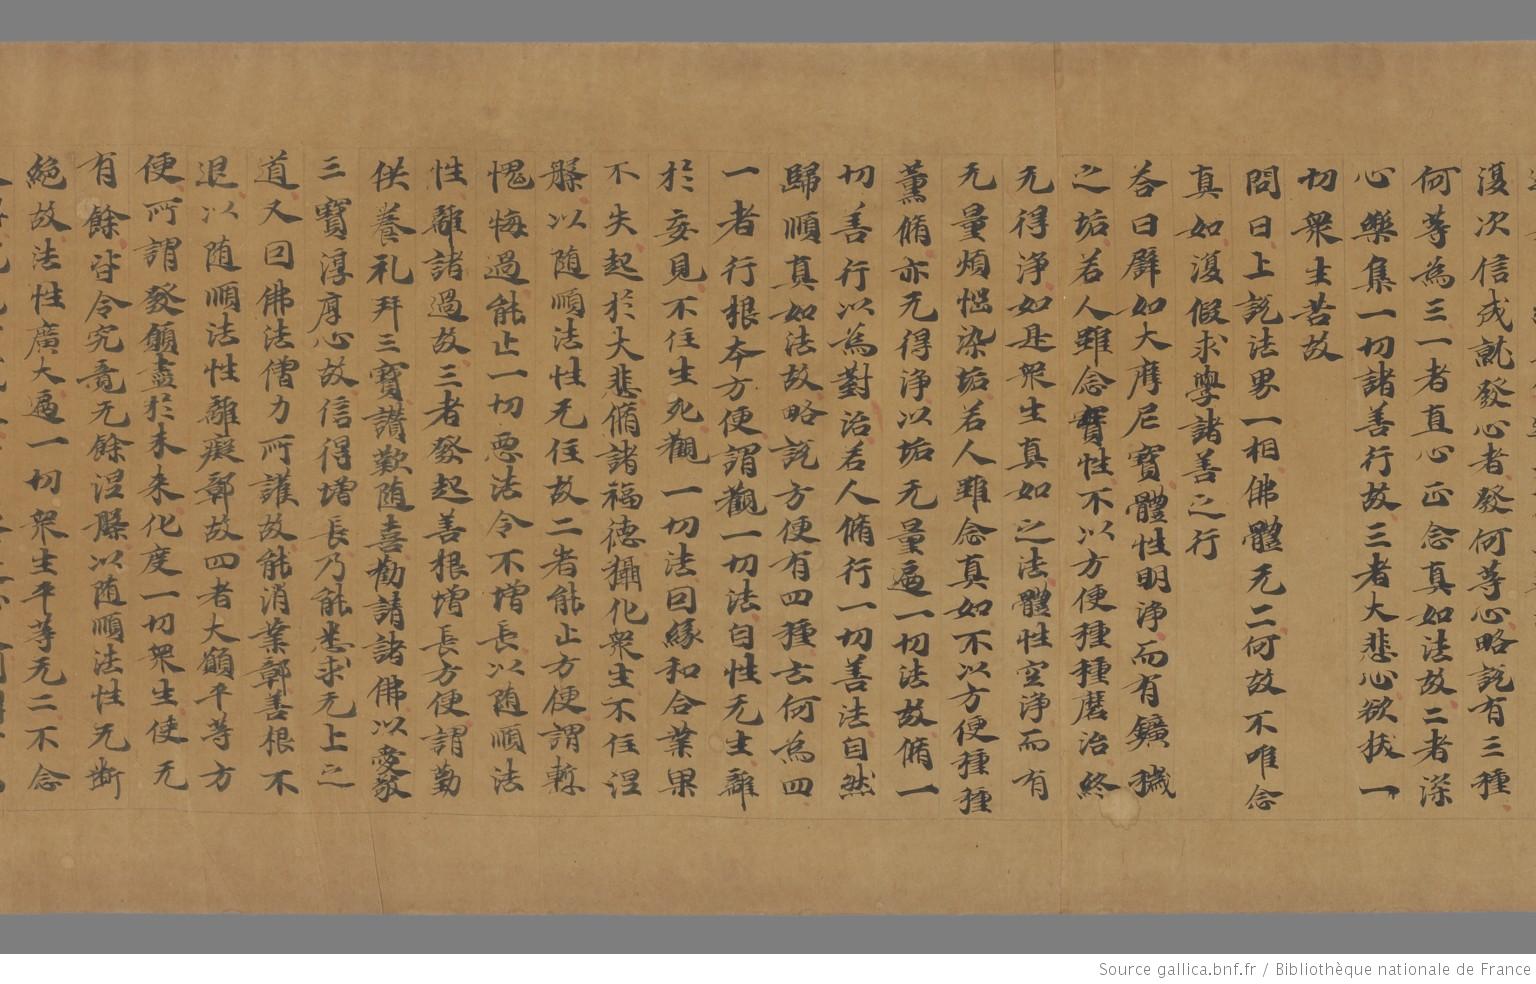 復次信成就發心者發何等心略說有三種
何等為三一者直心正念真如法故二者深
心樂集一切諸善行故三者大悲心欲拔一
切衆生苦故
問曰上說法界一相佛體无二何故不唯念
真如復假求學諸善之行
荅曰譬如大摩尼寶體性明淨而有鑛穢
之垢若人雖念寶性不以方便種種磨治終
无得淨如是衆生真如之法體性空淨而有
无量煩惱染垢若人雖念真如不以方便種種
薰脩亦无得淨以垢无量遍一切法故脩一
切善行以為對治若人脩行一切善法自然
歸順真如法故略說方便有四種云何為四
一者行根本方便謂觀一切法自性无生離
於妄見不住生死觀一切法因緣和合業果
不失起於大悲脩諸福德攝化衆生不住涅
槃以随順法性无住故二者能止方便謂慙
愧悔過能止一切惡法令不增長以随順法
性離諸過故三者發起善根增長方便謂勤
供養礼拜三寶讃歎随喜勸請諸佛以愛敬
三寶淳厚心故信得增長乃能悉求无上之
道又因佛法僧力所護故能消業鄣善根不
退以随順法性離癡鄣故四者大願平等方
便所謂發願盡於未来化度一切衆生使无
有餘皆令究竟无餘涅槃以随順法性无断
絶故法性廣大遍一切衆生平等无二不念
Source gallica.bnf.fr / Bibliothèque nationale de France